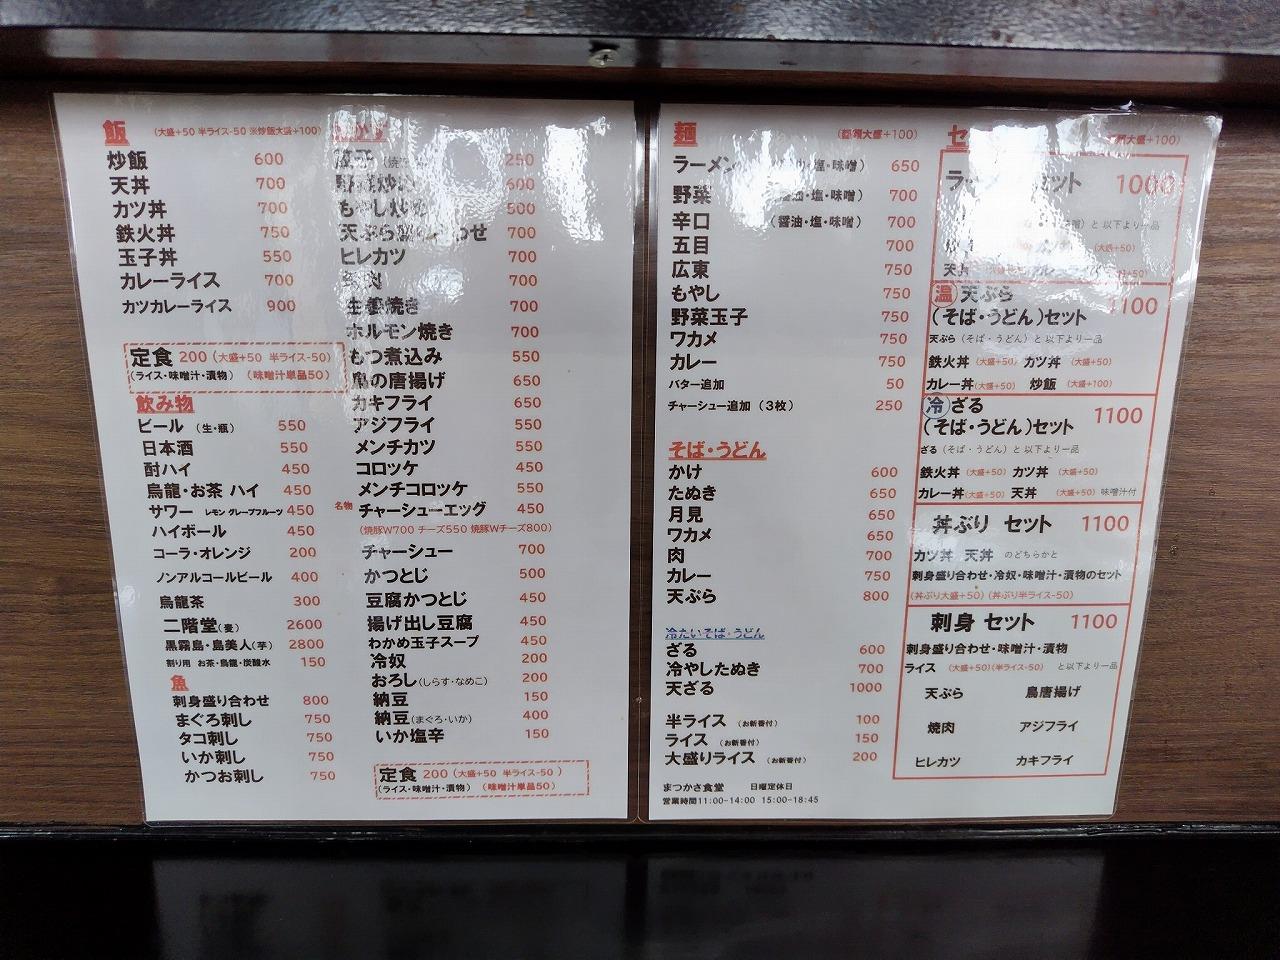 飯 (大盛+50 半ライス-50 ※炒飯大盛+100)
炒飯 600
天丼 700
カツ丼 700
鉄火丼 750
玉子丼 550
カレーライス 700
カツカレーライス 900
定食 200 (大盛+50 半ライス-50)
(ライス・味噌汁・漬物) (味噌汁単品50)
飲み物
ビール (生・瓶) 550
日本酒 550
酎ハイ 450
烏龍・お茶 ハイ 450
サワー レモン グレープフルーツ 450
ハイボール 450
コーラ・オレンジ 200
ノンアルコールビール 400
烏龍茶 300
二階堂(麦) 2600
黒霧島・島美人(芋) 2800
割り用 お茶・烏龍・炭酸水 150
魚
刺身盛り合わせ 800
まぐろ刺し 750
タコ刺し 750
いか刺し 750
かつお刺し 750
250
野菜炒め 600
もやし炒め 500
天ぷら盛り合わせ 700
ヒレカツ 700
焼肉 700
生姜焼き 700
ホルモン焼き 700
もつ煮込み 550
鳥の唐揚げ 650
カキフライ 650
アジフライ 550
メンチカツ 550
コロッケ 450
メンチコロッケ 550
名物 チャーシューエッグ 450
(焼豚W700 チーズ550 焼豚Wチーズ800)
チャーシュー 700
かつとじ 500
豆腐かつとじ 450
揚げ出し豆腐 450
わかめ玉子スープ 450
冷奴 200
おろし(しらす・なめこ) 200
納豆 150
納豆(まぐろ・いか) 400
いか塩辛 150
定食 200 (大盛+50 半ライス-50)
(ライス・味噌汁・漬物) (味噌汁単品50)
麺 (麺類大盛+100)
ラーメン (醤油・塩・味噌) 650
野菜 (醤油・塩・味噌) 700
辛口 (醤油・塩・味噌) 700
五目 700
広東 750
もやし 750
野菜玉子 750
ワカメ 750
カレー 750
バター追加 50
チャーシュー追加 (3枚) 250
そば・うどん
かけ 600
たぬき 650
月見 650
ワカメ 650
肉 700
カレー 750
天ぷら 800
冷たいそば・うどん
ざる 600
冷やしたぬき 700
天ざる 1000
半ライス (お新香付) 100
ライス (お新香付) 150
大盛りライス (お新香付) 200
まつかさ食堂 日曜定休日
営業時間11:00-14:00 15:00-18:45
大盛+100)
セット 1000
と 以下より一品
(大盛+50)
天丼
温 天ぷら
(そば・うどん)セット 1100
天ぷら (そば・うどん) と 以下より一品
鉄火丼 (大盛+50) カツ丼 (大盛+50)
カレー丼(大盛+50) 炒飯 (大盛+100)
冷 ざる
(そば・うどん)セット 1100
ざる (そば・うどん) と 以下より一品
鉄火丼 (大盛+50) カツ丼 (大盛+50)
カレー丼(大盛+50) 天丼 (大盛+50) 味噌汁付
丼ぶり セット 1100
カツ丼 天丼 のどちらかと
刺身盛り合わせ・冷奴・味噌汁・漬物のセット
(丼ぶり大盛+50) (丼ぶり半ライス-50)
刺身 セット 1100
刺身盛り合わせ・味噌汁・漬物
ライス (大盛+50)(半ライス-50) と以下より一品
天ぷら 鳥唐揚げ
焼肉 アジフライ
ヒレカツ カキフライ